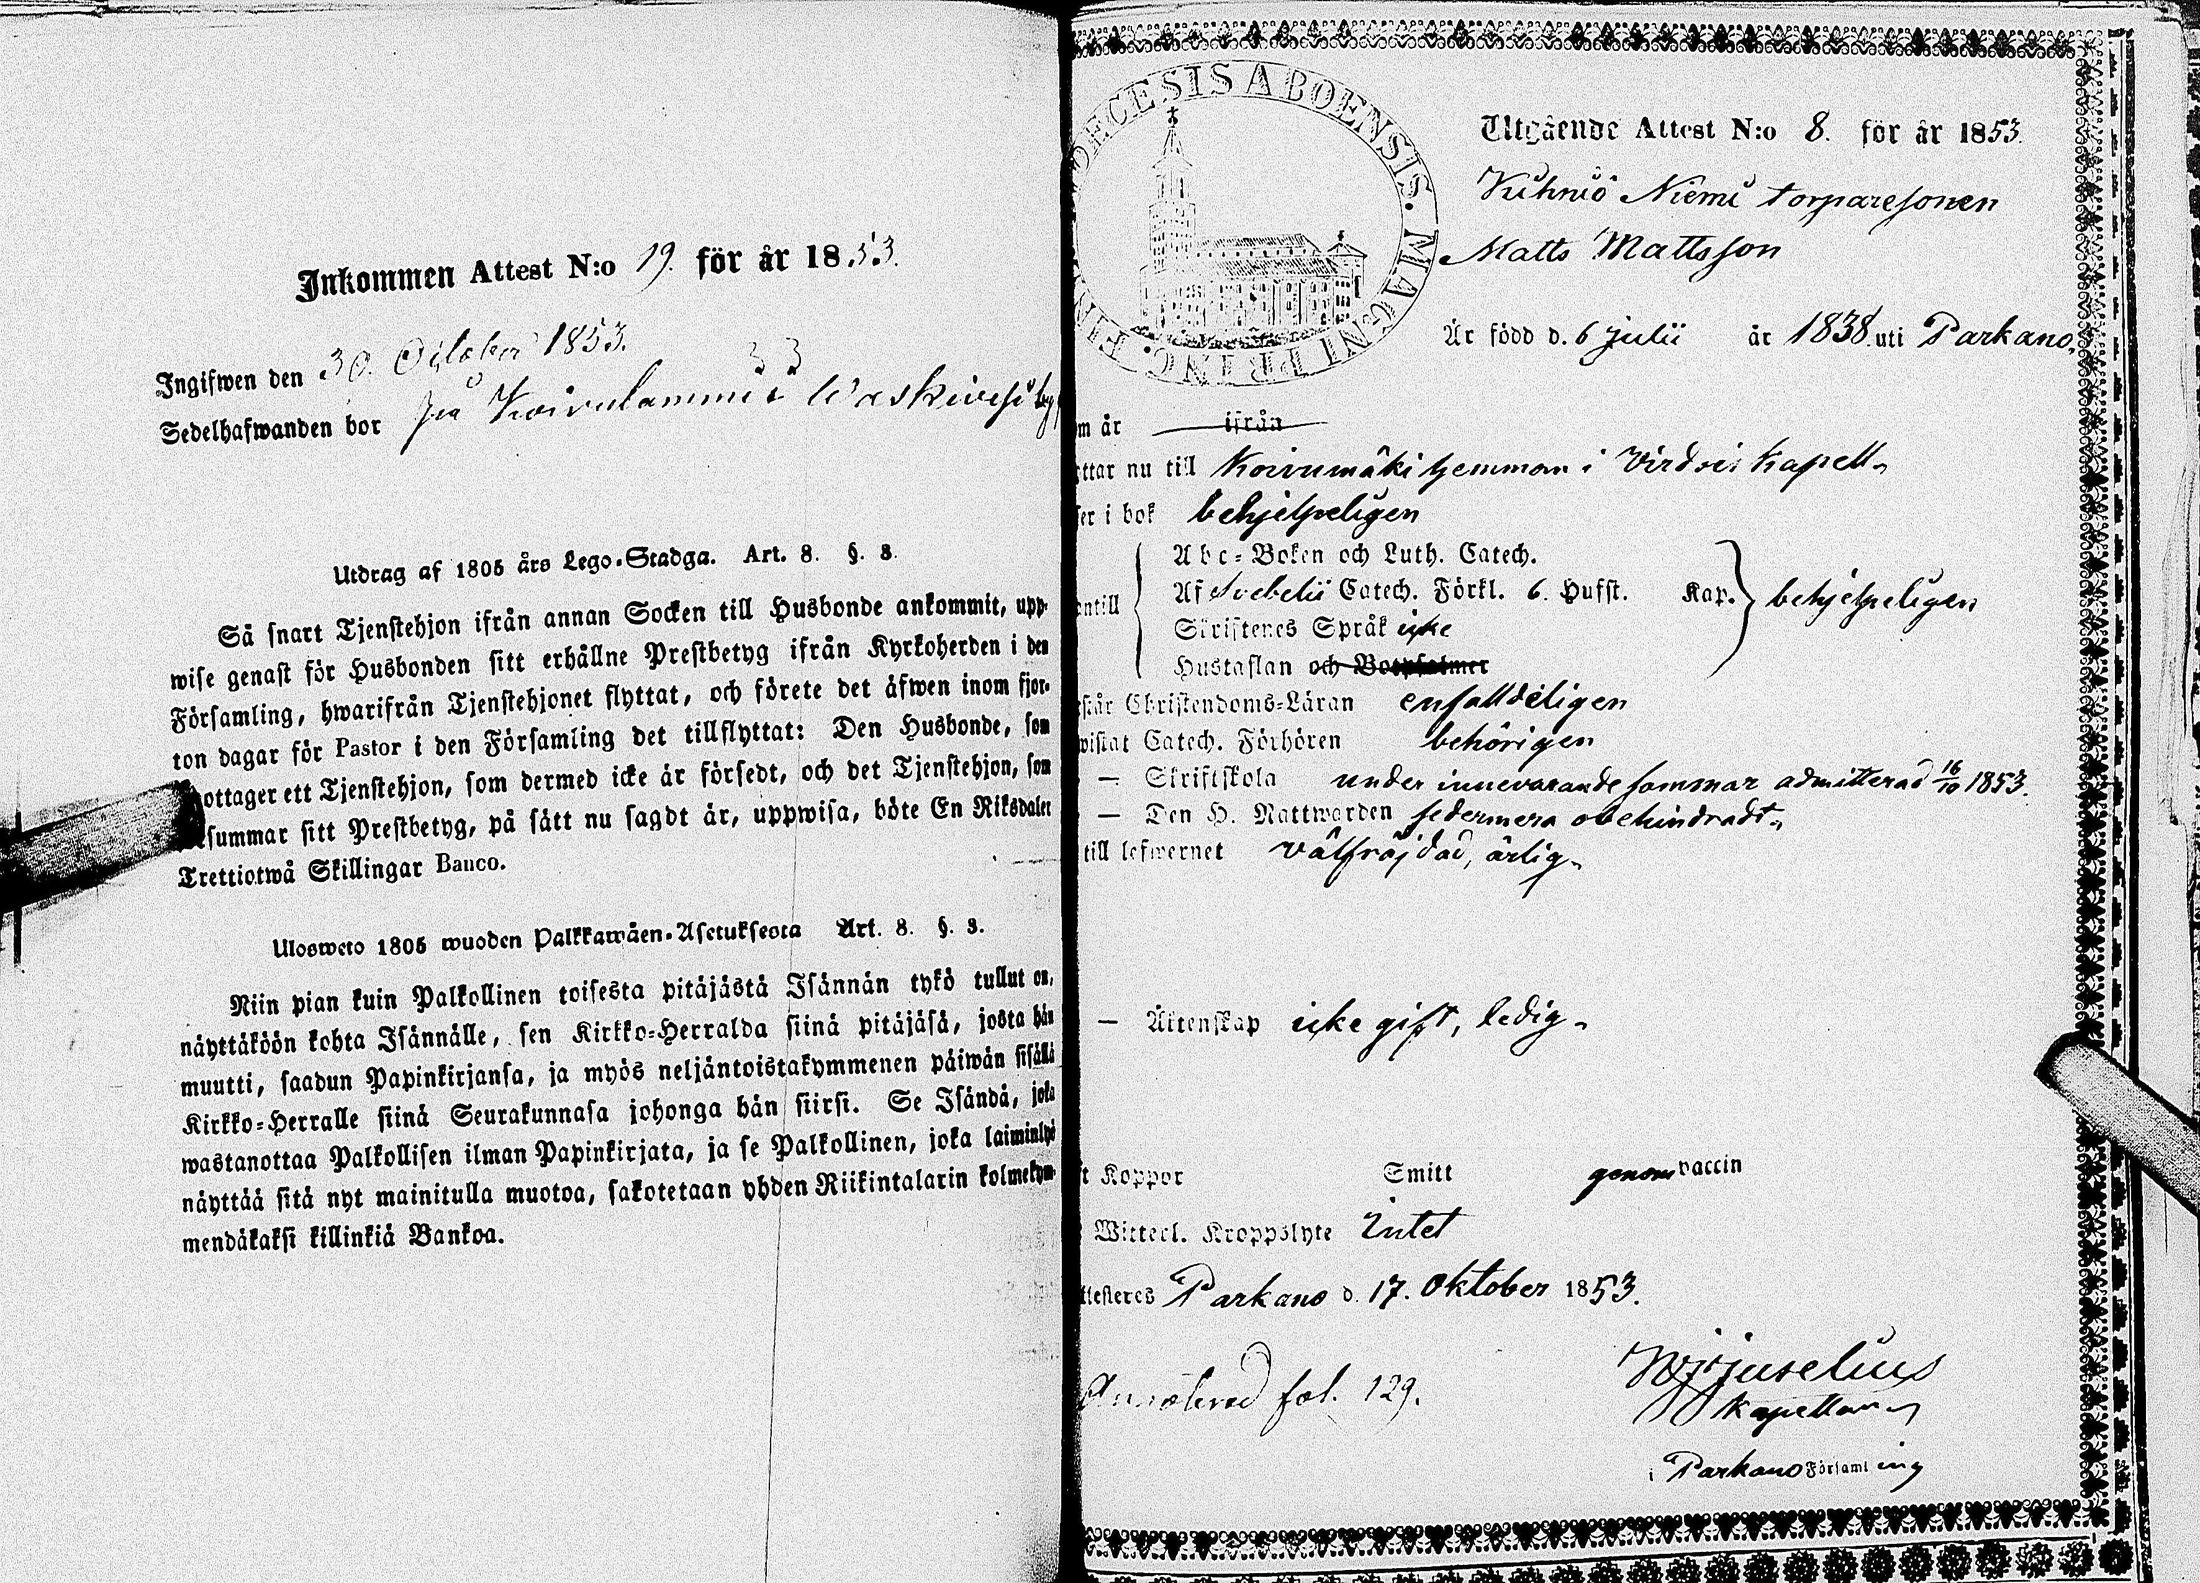 Inkommen Attest N:o 19. för år 1853.
Ingifwen den 30. October 1853.
33
Sedelhafwanden bor på Koivulammi i Waskivesi by
Utdrag af 1805 års Lego-Stadga. Art. 8. §. 3.
Så snart Tjenstehjon ifrån annan Socken till Husbonde ankommit, upp-
wise genast för Husbonden sitt erhållne Prestbetyg ifrån Kyrkoherden i den
Församling, hwarifrån Tjenstehjonet flyttat, och förete det äfwen inom fjor-
ton dagar för Pastor i den Församling det tillflyttat: Den Husbonde, som
ottager ett Tjenstehjon, som dermed icke är försedt, och det Tjenstehjon, som
summar sitt Prestbetyg, på sätt nu sagdt är, uppwisa, böte En Riksdaler
Trettiotwå Skillingar Banco.
Ulosweto 1805 wuoden Palkkawäen-Asetuksesta Art. 8. §. 3.
Niin pian kuin Palkollinen toisesta pitäjästä Isännän tykö tullut on,
näyttäköön kohta Isännälle, sen Kirkko-Herralda siinä pitäjäsä, josta hän
muutti, saadun Papinkirjansa, ja myös neljäntoistakymmenen päiwän sisällä
Kirkko-Herralle siinä Seurakunnasa johonga hän siirsi. Se Isändä, joka
wastanottaa Palkollisen ilman Papinkirjata, ja se Palkollinen, joka laiminlyö
näyttää sitä nyt mainitulla muotoa, sakotetaan yhden Riikintalarin kolmekym-
mendäkaksi killinkiä Bankoa.
OECESIS ABOENSIS. MAGNI PRINC. FIN
Utgående Attest N:o 8. för år 1853.
Kihniö Niemi torparesonen
Matts Mattsson
Är född d. 6 julii år 1838. uti Parkano,
m är ifrån
ttar nu till Koivumäki hemman i Virdois Kapell
ser i bok behjelpeligen
Abc-Boken och Luth. Catech.
ntill Af Svebelii Catech. Förkl. 6. Hufst. Kap. behjelpeligen
Skriftenes Språk icke
Hustaflan och Botpsalmer
står Christendoms-Läran enfalldeligen
wistat Catech. Förhören behörigen
— Skriftskola under innevarande sommar admitterad 16/10 1853.
— Den H. Nattwarden sedermera obehindradt
till lefwernet välfräjdad, ärlig
— Äktenskap icke gift, ledig
t Koppor Smitt genom vaccin
Witterl. Kroppslyte Intet
ttesteres Parkano d. 17. Oktober 1853.
Annoterad fol. 129.
Kapellan
i Parkano Församling